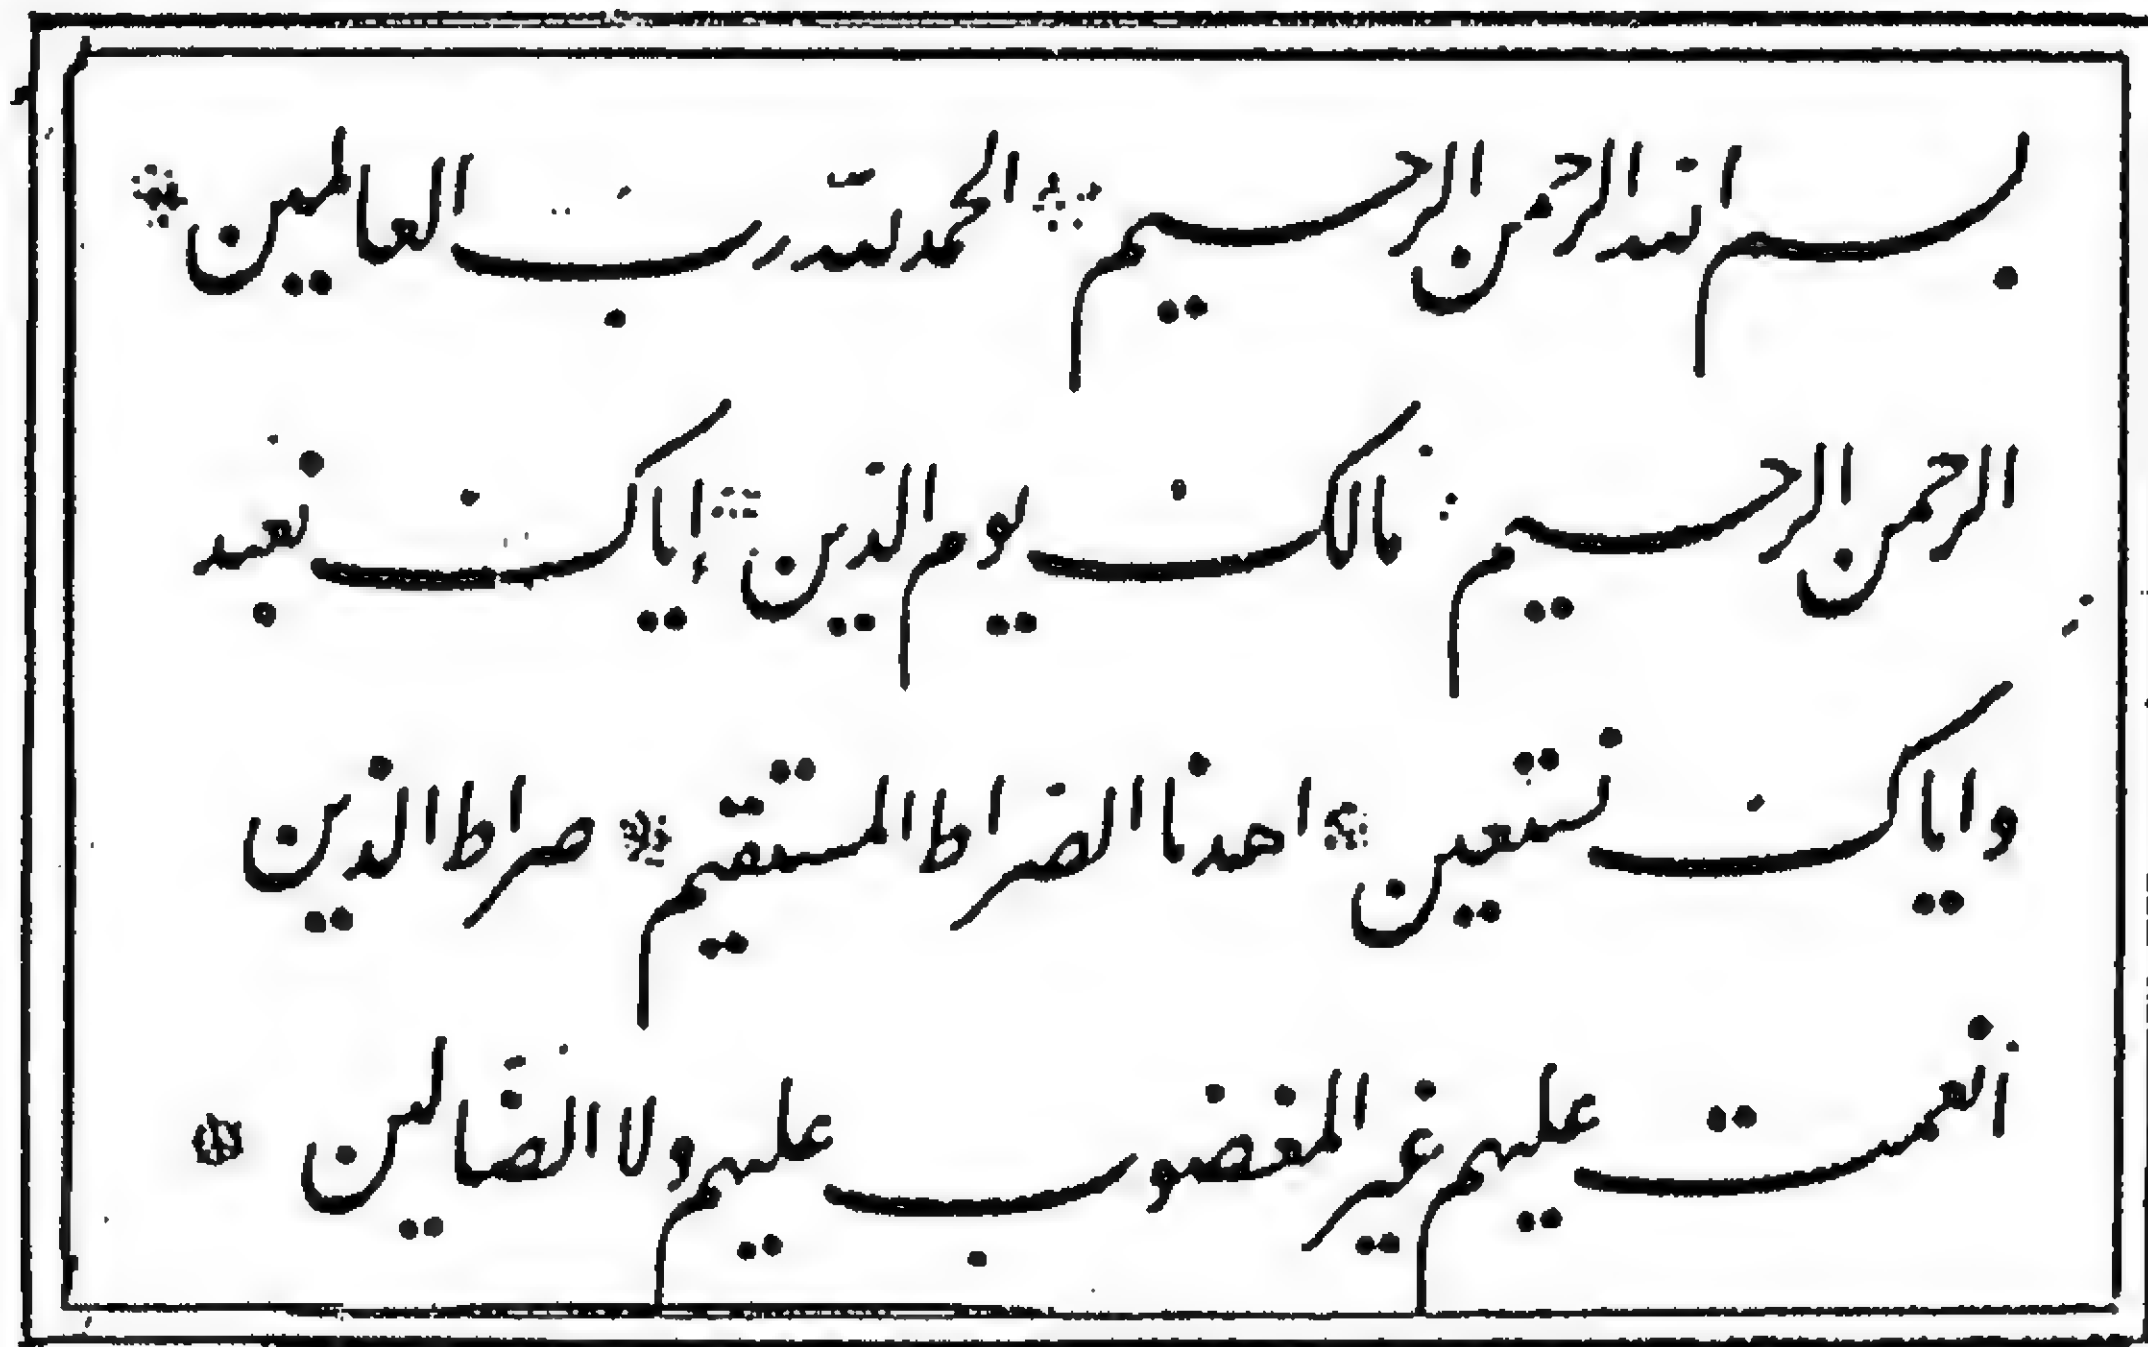 بسم الله الرحمن الرحيم ۞ الحمد لله رب العالمين ۞
الرحمن الرحيم ∴ مالك يوم الدين ۞ إياك نعبد
و اياك نستعين ۞ اهدنا الصراط المستقيم ۞ صراط الذين
أنعمت عليهم غير المغضوب عليهم ولا الضالين ۞